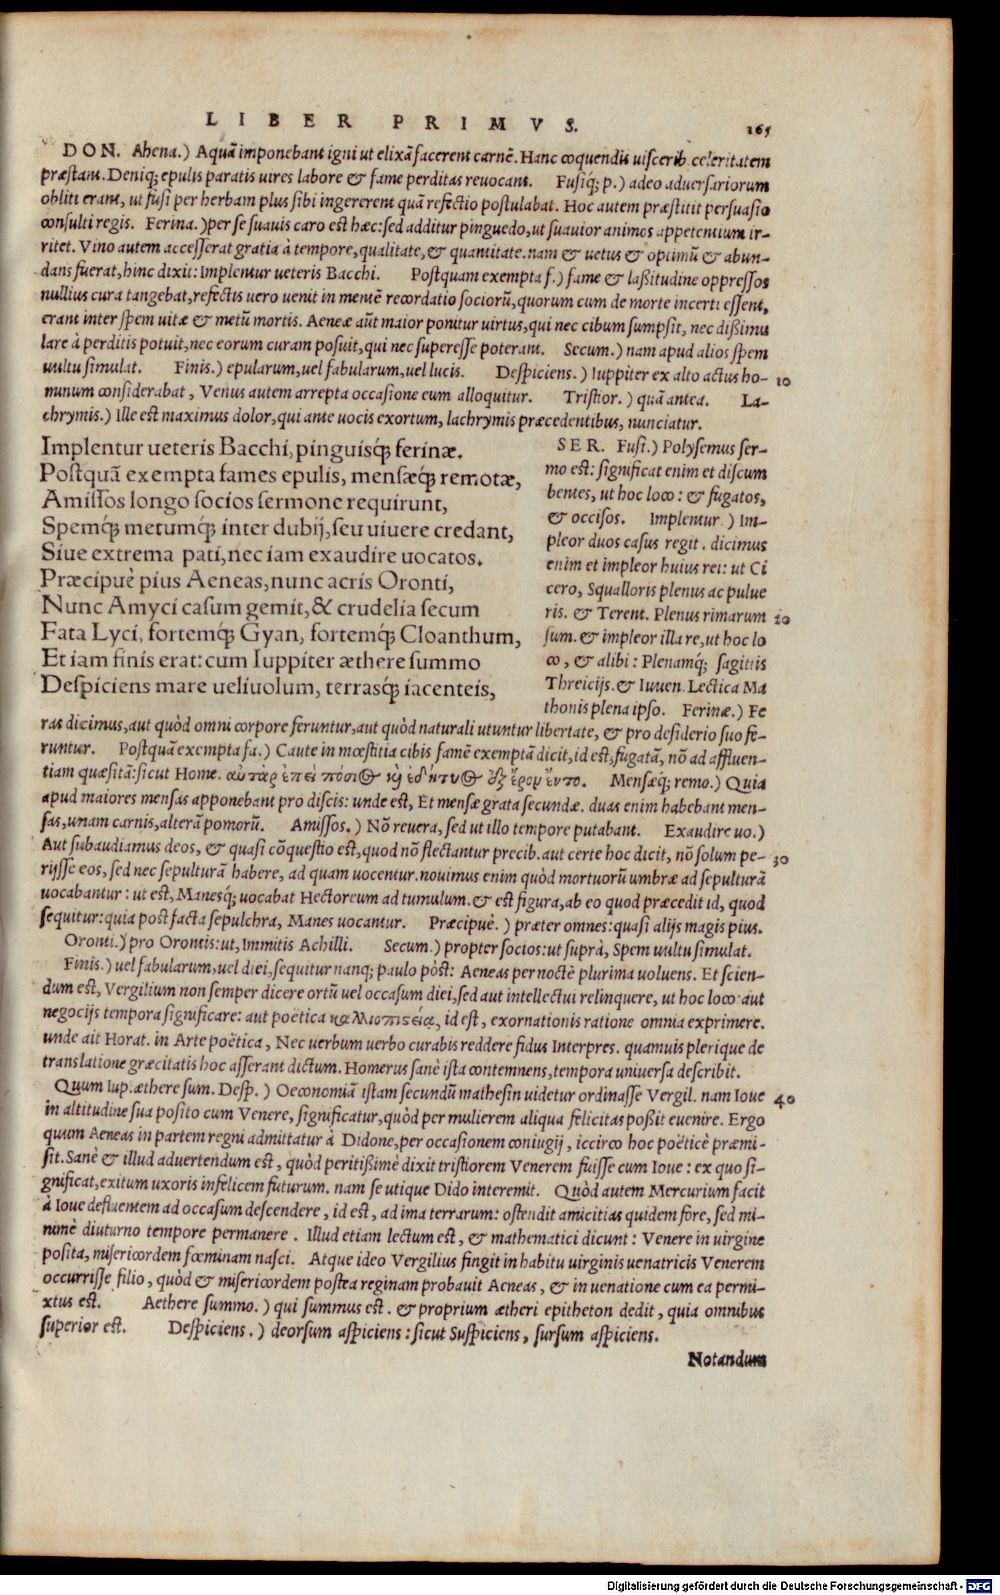 LIBER PRIMVS. 165
DON. Ahena.) Aquā imponebant igni ut elixā facerent carnē. Hanc coquendis uiscerib. celeritatem
præstant. Deniq; epulis paratis uires labore & fame perditas reuocant. Fusiq; p.) adeo aduersariorum
obliti erant, ut fusi per herbam plus sibi ingererent quā refectio postulabat. Hoc autem præstitit persuasio
consulti regis. Ferina.) per se suauis caro est hæc: sed additur pinguedo, ut suauior animos appetentium ir-
ritet. Vino autem accesserat gratia à tempore, qualitate, & quantitate. nam & uetus & optimū & abun-
dans fuerat, hinc dixit: Implentur ueteris Bacchi. Postquam exempta f.) fame & laßitudine oppressos
nullius cura tangebat, refectis uero uenit in mentē recordatio sociorū, quorum cum de morte incerti essent,
erant inter spem uitæ & metū mortis. Aeneæ aūt maior ponitur uirtus, qui nec cibum sumpsit, nec dißimu
lare à perditis potuit, nec eorum curam posuit, qui nec superesse poterant. Secum.) nam apud alios spem
uultu simulat. Finis.) epularum, uel fabularum, uel lucis. Despiciens.) Iuppiter ex alto actus ho- 10
minum considerabat, Venus autem arrepta occasione eum alloquitur. Tristior.) quā antea. La-
chrymis.) Ille est maximus dolor, qui ante uocis exortum, lachrymis præcedentibus, nunciatur.
Implentur ueteris Bacchi, pinguisq́; ferinæ.
Postquā exempta fames epulis, mensæq́; remotæ,
Amissos longo socios sermone requirunt,
Spemq́; metumq́; inter dubij, seu uiuere credant,
Siue extrema pati, nec iam exaudire uocatos.
Præcipuè pius Aeneas, nunc acris Oronti,
Nunc Amyci casum gemit, & crudelia secum
Fata Lyci, fortemq́; Gyan, fortemq́; Cloanthum,
Et iam finis erat: cum Iuppiter æthere summo
Despiciens mare ueliuolum, terrasq́; iacenteis,
SER. Fusi.) Polysemus ser-
mo est: significat enim et discum
bentes, ut hoc loco: & fugatos,
& occisos. Implentur.) Im-
pleor duos casus regit. dicimus
enim et impleor huius rei: ut Ci
cero, Squalloris plenus ac pulue
ris. & Terent. Plenus rimarum 20
sum. & impleor illa re, ut hoc lo
co, & alibi: Plenamq́; sagittis
Threicijs. & Iuuen. Lectica Ma
thonis plena ipso. Ferinæ.) Fe
ras dicimus, aut quòd omni corpore feruntur, aut quòd naturali utuntur libertate, & pro desiderio suo fe-
runtur. Postquā exempta fa.) Caute in mœstitia cibis famē exemptā dicit, id est, fugatā, nō ad affluen-
tiam quæsitā: sicut Home. αὐτὰρ ἐπεὶ πόσιος καὶ ἐδητύος ἐξ ἔρον ἕντο. Mensæq́; remo.) Quia
apud maiores mensas apponebant pro discis: unde est, Et mensæ grata secundæ. duas enim habebant men-
sas, unam carnis, alterā pomorū. Amissos.) Nō reuera, sed ut illo tempore putabant. Exaudire uo.)
Aut subaudiamus deos, & quasi cōquestio est, quod nō flectantur precib. aut certe hoc dicit, nō solum pe- 30
rijsse eos, sed nec sepulturā habere, ad quam uocentur. nouimus enim quòd mortuorū umbræ ad sepulturā
uocabantur: ut est, Manesq́; uocabat Hectoreum ad tumulum. & est figura, ab eo quod præcedit id, quod
sequitur: quia post facta sepulchra, Manes uocamur. Præcipuè.) præter omnes: quasi alijs magis pius.
Oronti.) pro Orontis: ut, Immitis Achilli. Secum.) propter socios: ut suprà, Spem uultu simulat.
Finis.) uel fabularum, uel diei, sequitur nanq; paulo pòst: Aeneas per noctē plurima uoluens. Et scien-
dum est, Vergilium non semper dicere ortū uel occasum diei, sed aut intellectui relinquere, ut hoc loco: aut
negocijs tempora significare: aut poëtica καλλιοποιεία, id est, exornationis ratione omnia exprimere.
unde ait Horat. in Arte poëtica, Nec uerbum uerbo curabis reddere fidus Interpres. quamuis plerique de
translatione græcitatis hoc asserant dictum. Homerus sanè ista contemnens, tempora uniuersa describit.
Quum Iup. æthere sum. Desp.) Oeconomiā istam secundū mathesin uidetur ordinasse Vergil. nam Ioue 40
in altitudine sua posito cum Venere, significatur, quòd per mulierem aliqua felicitas poßit euenire. Ergo
quum Aeneas in partem regni admittatur à Didone, per occasionem coniugij, iccirco hoc poëticè præmi-
sit. Sanè & illud aduertendum est, quòd peritißimè dixit tristiorem Venerem fuisse cum Ioue: ex quo si-
gnificat, exitum uxoris infelicem futurum. nam se utique Dido interemit. Quòd autem Mercurium facit
à Ioue defluentem ad occasum descendere, id est, ad ima terrarum: ostendit amicitias quidem fore, sed mi-
nimè diuturno tempore permanere. Illud etiam lectum est, & mathematici dicunt: Venere in uirgine
posita, misericordem fœminam nasci. Atque ideo Vergilius fingit in habitu uirginis uenatricis Venerem
occurrisse filio, quòd & misericordem postea reginam probauit Aeneas, & in uenatione cum ea permi-
xtus est. Aethere summo.) qui summus est. & proprium ætheri epitheton dedit, quia omnibus
superior est. Despiciens.) deorsum aspiciens: sicut Suspiciens, sursum aspiciens.
Notandum
Digitalisierung gefördert durch die Deutsche Forschungsgemeinschaft - DFG